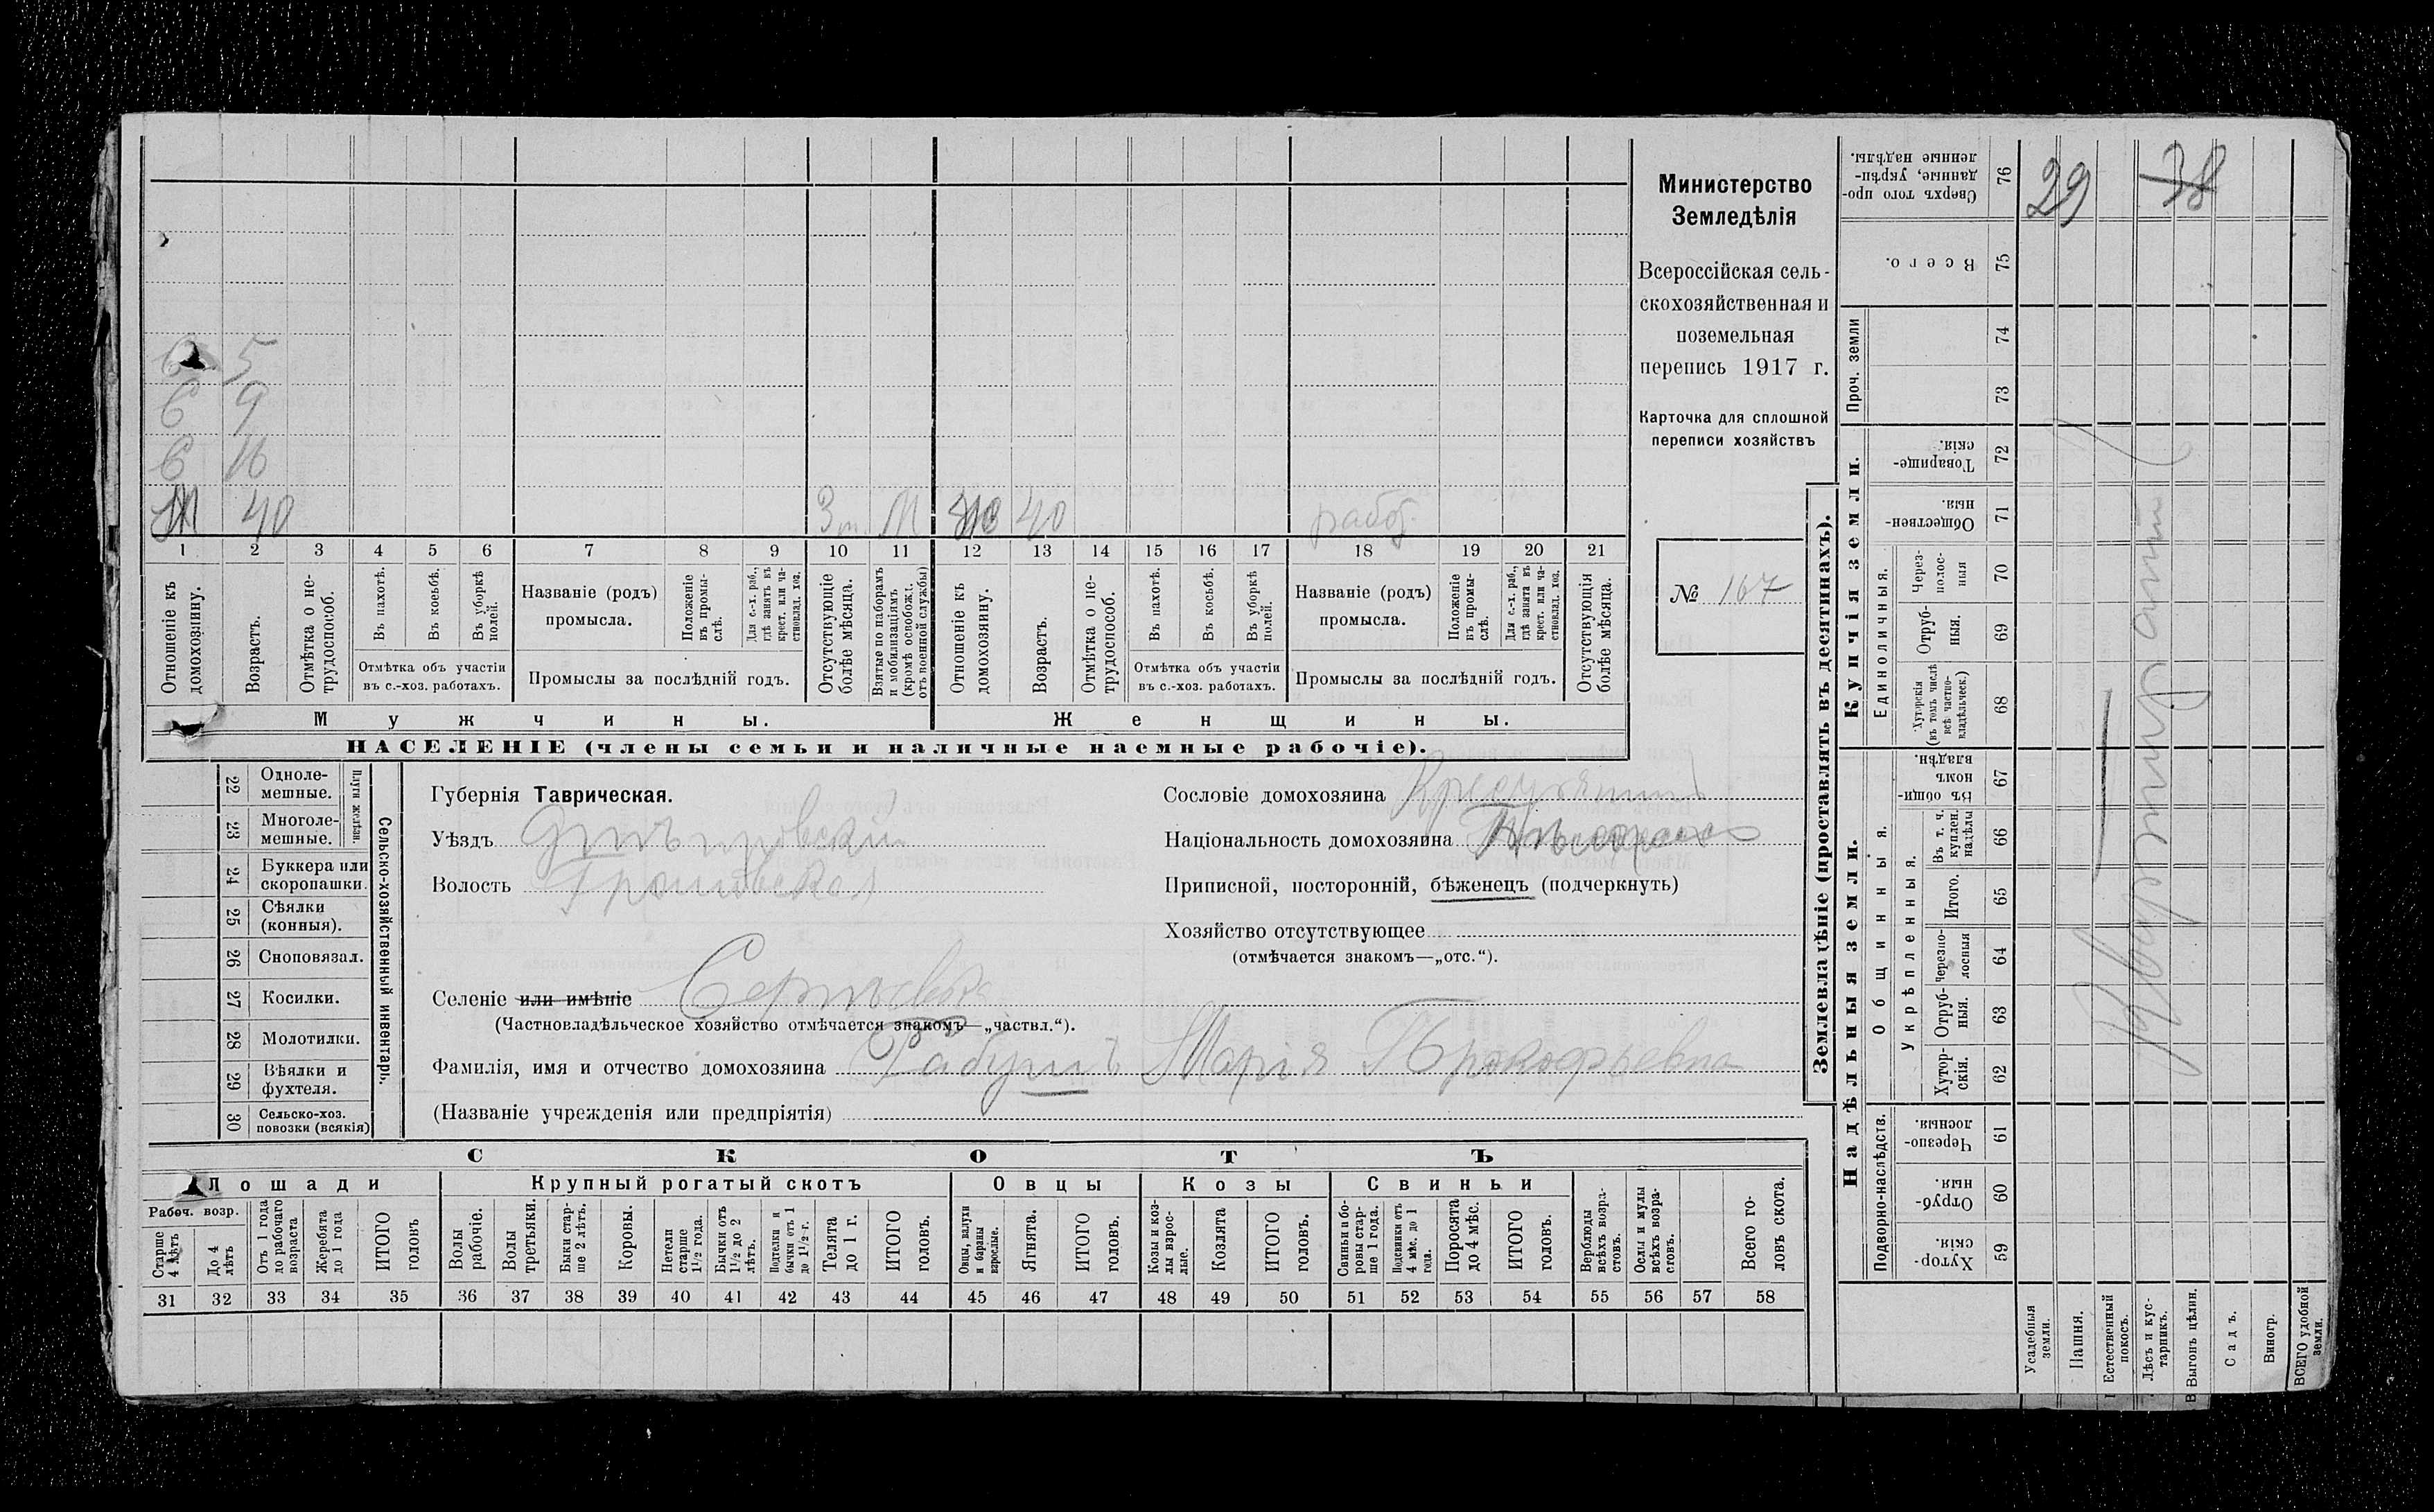 Министерство
Земледѣлія
Всероссійская сель-
скохозяйственная и
поземельная
перепись 1917 г.
Карточка для сплошной
переписи хозяйствъ
№ 167
5
С 9
С 16
М 40 М 40 работ.
1 2 3 4 5 6 7 8 9 10 11 12 13 14 15 16 17 18 19 20 21
Отношеніе къ
домохозяину.
Возрастъ.
Отмѣтка о не-
трудоспособ.
Въ пахотѣ.
Въ косьбѣ.
Въ уборкѣ
полей.
Отмѣтка объ участіи
въ с.-хоз. работахъ.
Названіе (родъ)
промысла.
Положеніе
въ промы-
слѣ.
Для с.-х. раб.,
гдѣ занятъ въ
крест. или ча-
стновлад. хоз.
Промыслы за послѣдній годъ.
Отсутствующіе
болѣе мѣсяца.
Взятые по наборамъ
и мобилизаціямъ
(кромѣ освобожд.
отъ военной службы)
Отношеніе къ
домохозяину.
Возрастъ.
Отмѣтка о не-
трудоспособ.
Въ пахотѣ.
Въ косьбѣ.
Въ уборкѣ
полей.
Отмѣтка объ участіи
въ с.-хоз. работахъ.
Названіе (родъ)
промысла.
Положеніе
въ промы-
слѣ.
Для с.-х. раб.,
гдѣ занята въ
крест. или ча-
стновлад. хоз.
Промыслы за послѣдній годъ.
Отсутствующія
болѣе мѣсяца.
Мужчины.
Женщины.
НАСЕЛЕНІЕ (члены семьи и наличные наемные рабочіе).
22 Одноле-
мешные.
23 Многоле-
мешные.
Плуги желѣзн.
24 Буккера или
скоропашки.
25 Сѣялки
(конныя).
26 Сноповязал.
27 Косилки.
28 Молотилки.
29 Вѣялки и
фухтеля.
30 Сельско-хоз.
повозки (всякія)
Сельско-хозяйственный инвентарь.
Губернія Таврическая.
Уѣздъ Днѣпровскій
Волость
Селеніе или имѣніе Сергѣевка
(Частновладѣльческое хозяйство отмѣчается знакомъ—„частвл.“).
Фамилія, имя и отчество домохозяина Марія Прокофьевна
(Названіе учрежденія или предпріятія)
Сословіе домохозяина
Національность домохозяина
Приписной, посторонній, бѣженецъ (подчеркнуть)
Хозяйство отсутствующее
(отмѣчается знакомъ—„отс.“).
СКОТЪ
Лошади
Рабоч. возр.
Старше
4 лѣтъ
До 4
лѣтъ
Отъ 1 года
до рабочаго
возраста
Жеребята
до 1 года
ИТОГО
головъ
Крупный рогатый скотъ
Волы
рабочіе.
Волы
третьяки.
Быки стар-
ше 2 лѣтъ.
Коровы.
Нетели
старше
1½ года.
Бычки отъ
1½ до 2
лѣтъ.
Подтелки и
бычки отъ 1
до 1½ г.
Телята
до 1 г.
ИТОГО
головъ.
Овцы
Овцы, валухи
и бараны
взрослые.
Ягнята.
ИТОГО
головъ.
Козы
Козы и коз-
лы взрос-
лые.
Козлята
ИТОГО
головъ.
Свиньи
Свиньи и бо-
ровы стар-
ше 1 года.
Подсвинки отъ
4 мѣс. до 1
года.
Поросята
до 4 мѣс.
ИТОГО
головъ.
Верблюды
всѣхъ возра-
стовъ.
Ослы и мулы
всѣхъ возра-
стовъ.
Всего го-
ловъ скота.
31 32 33 34 35 36 37 38 39 40 41 42 43 44 45 46 47 48 49 50 51 52 53 54 55 56 57 58
Землевладѣніе (проставлять въ десятинахъ).
Надѣльныя земли.
Подворно-наслѣдств.
Хутор-
скія.
59
Отруб-
ныя.
60
Черезпо-
лосныя.
61
Общинныя.
Укрѣпленныя.
Хутор-
скія.
62
Отруб-
ныя.
63
Черезпо-
лосныя
64
Итого.
65
Въ т. ч.
куплен.
надѣлы
66
Въ общин-
номъ
владѣн.
67
Купчія земли.
Единоличныя.
Хуторскія
(въ томъ числѣ
всѣ частно-
владѣльческ.)
68
Отруб-
ныя.
69
Через-
полос-
ныя
70
Обществен-
ныя
71
Товарище-
скія.
72
Проч. земли
73
74
Всего.
75
Сверхъ того про-
данные, укрѣп-
ленные надѣлы.
76
29
38
Усадебныя
земли.
Пашня.
Естественный
покосъ.
Лѣсъ и кус-
тарникъ.
Выгонъ цѣлин.
Садъ.
Виногр.
ВСЕГО удобной
земли.